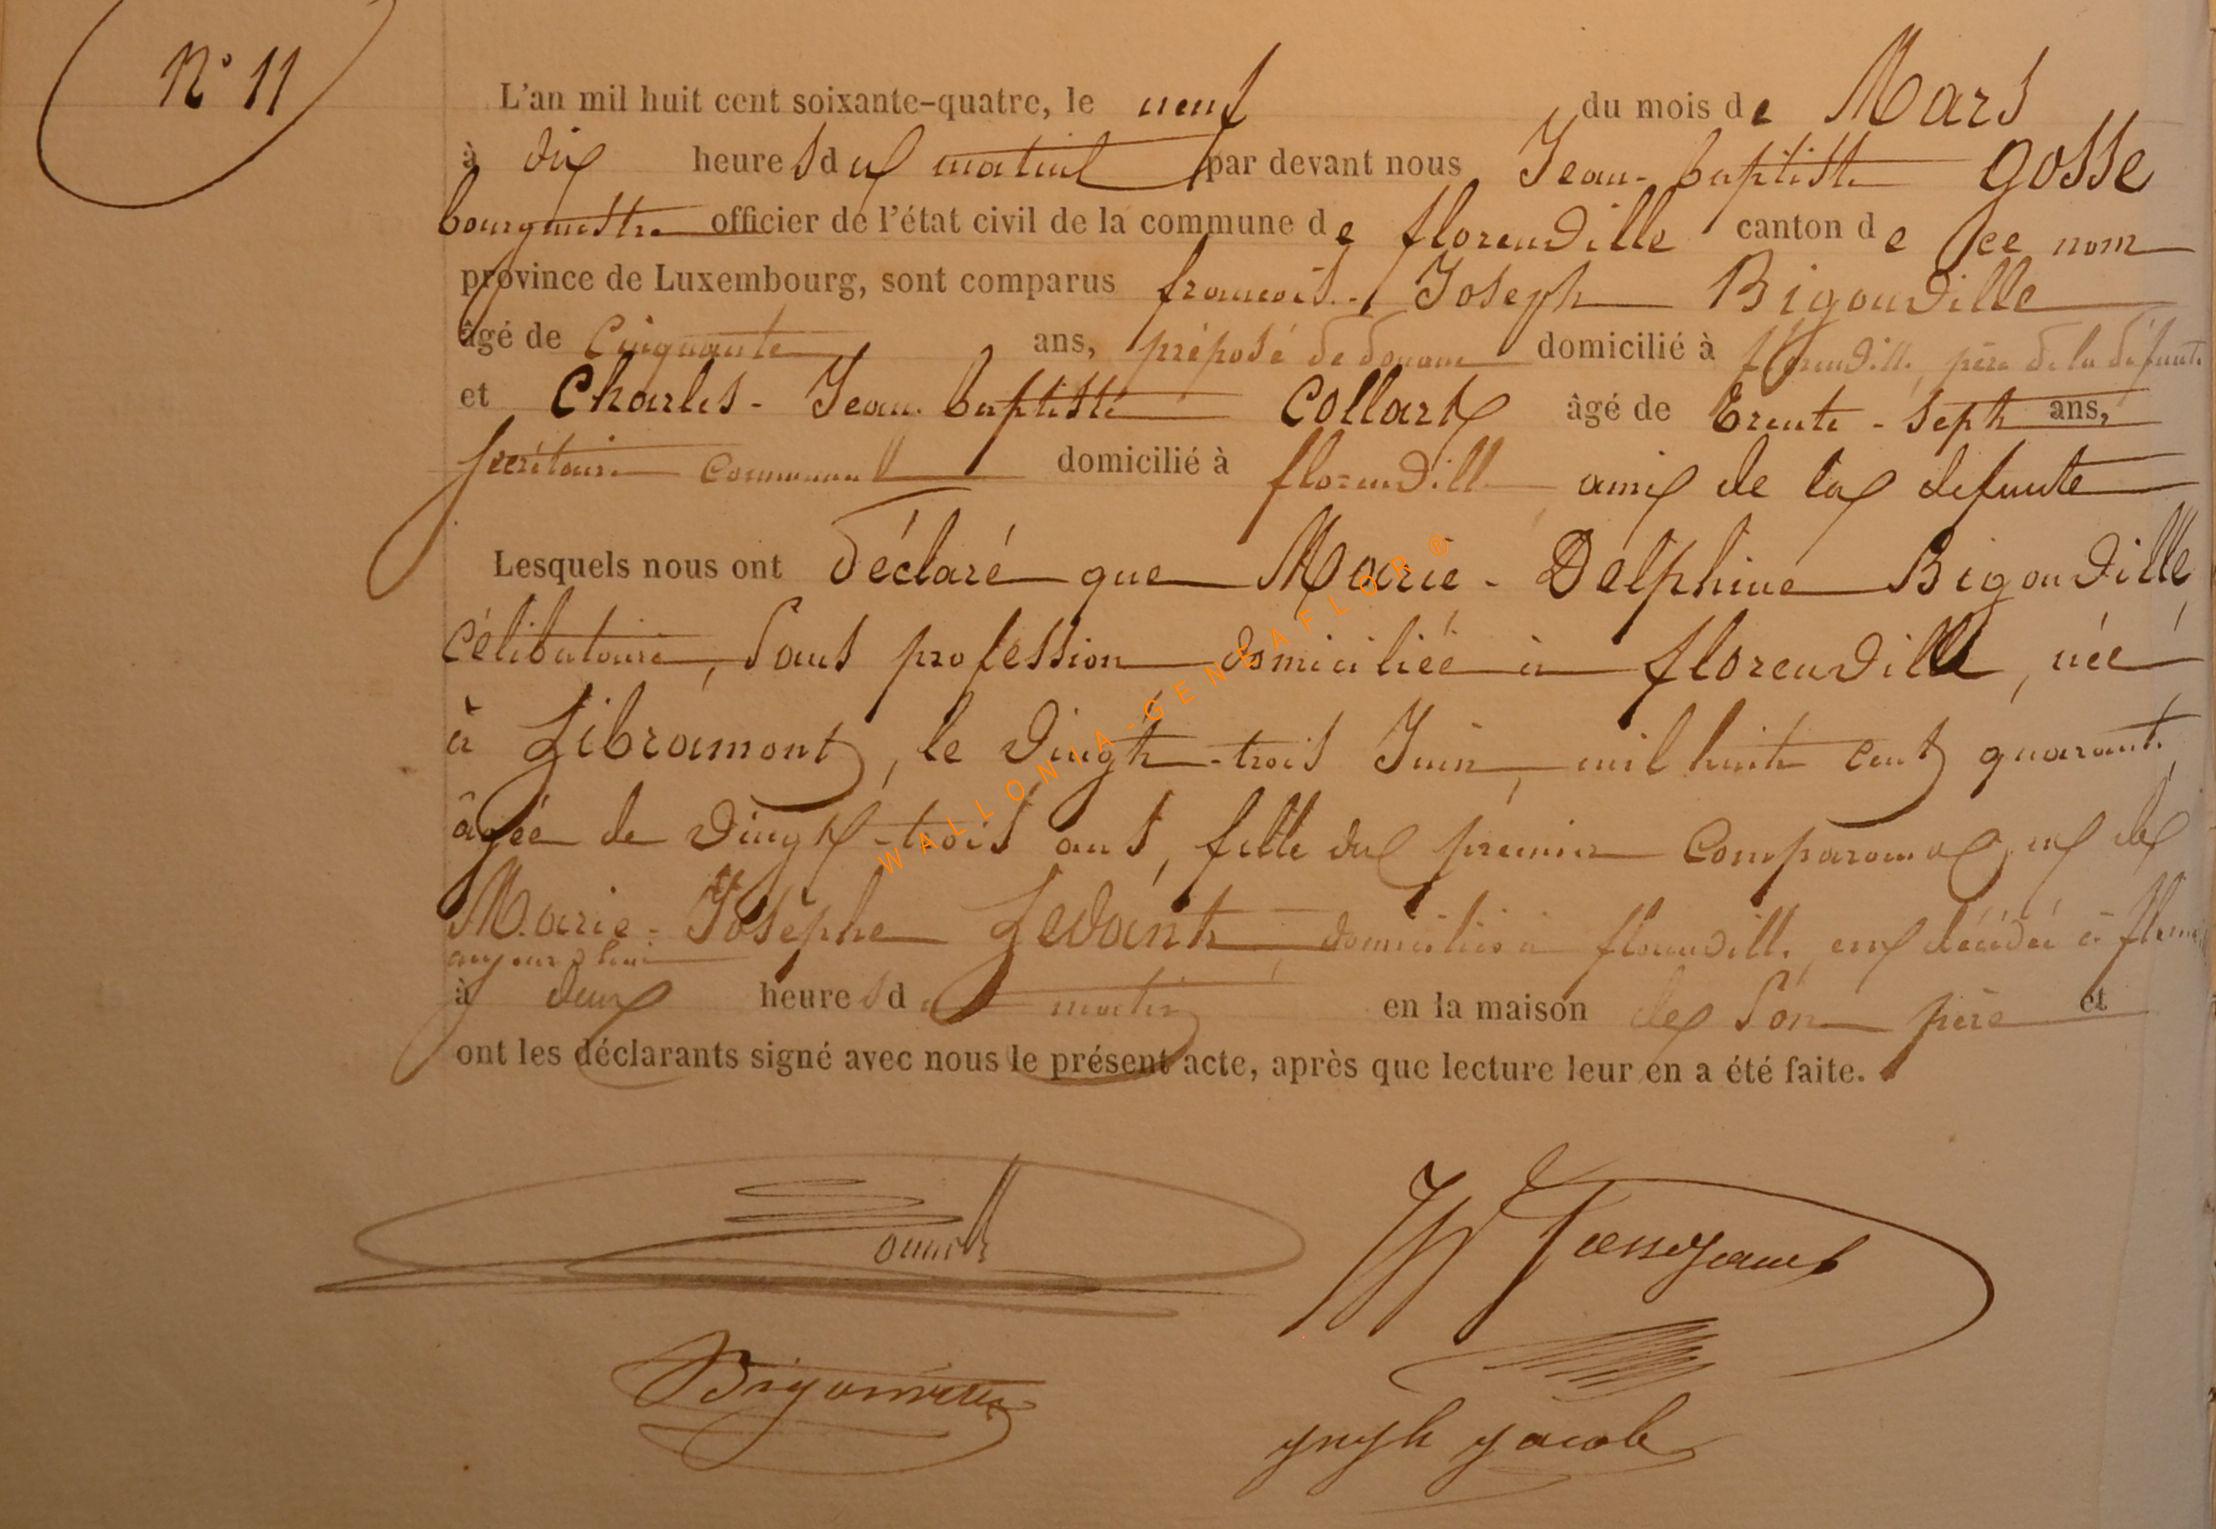 N° 11
L'an mil huit cent soixante-quatre, le neuf du mois de Mars
à dix heures du matin par devant nous Jean-baptiste Gosse
bourgmestre officier de l'état civil de la commune de florenville canton de ce nom
province de Luxembourg, sont comparus françois-Joseph Bigonville
âgé de Cinquante ans, préposé de douane domicilié à florenville, père de la défunte
et Charles-Jean-baptiste Collart âgé de trente-sept ans,
secrétaire communal domicilié à florenville ami de la défunte
Lesquels nous ont déclaré que Marie-Delphine Bigonville,
célibataire, sans profession domiciliée à florenville, née
à Libramont, le vingt-trois Juin, mil huit cent quarante,
âgée de vingt-trois ans, fille du premier comparant et de
Marie-Josèphe Levant domiciliés à florenville, est décédée à
aujourd'hui
à deux heures du matin en la maison de son père et
ont les déclarants signé avec nous le présent acte, après que lecture leur en a été faite.
Bigonville
WALLONIA-GENEAFLOR ®